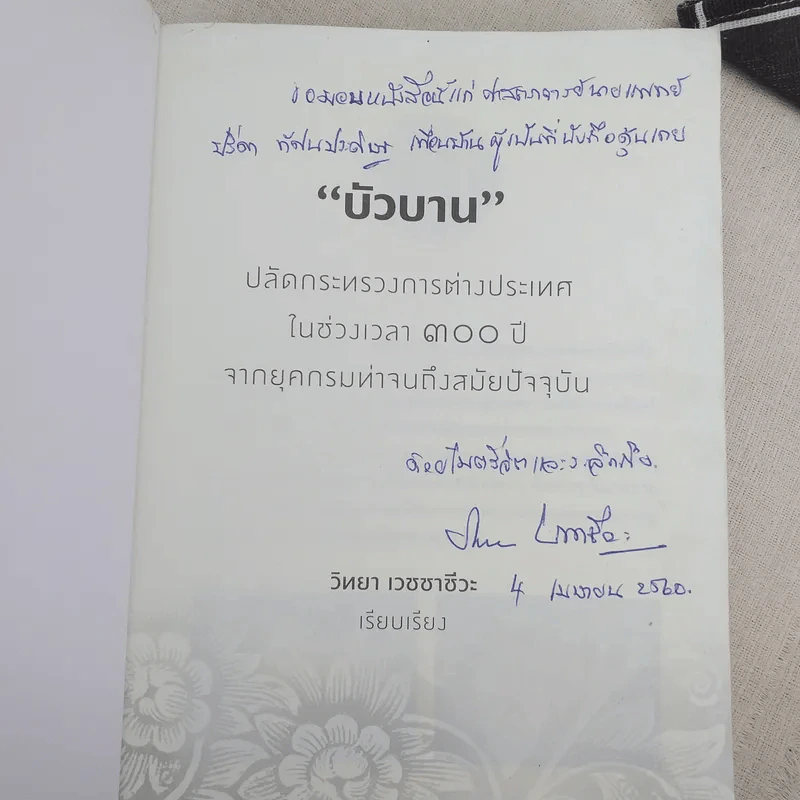 ขอมอบหนังสือนี้แก่ ศาสตราจารย์นายแพทย์
ปรีดา ทัศนประดิษฐ เพื่อนบ้าน ผู้เป็นที่นับถือคุ้นเคย
“บัวบาน”
ปลัดกระทรวงการต่างประเทศ
ในช่วงเวลา ๓๐๐ ปี
จากยุคกรมท่าจนถึงสมัยปัจจุบัน
ด้วยไมตรีจิตและระลึกถึง.
วิทยา เวชชาชีวะ
วิทยา เวชชาชีวะ 4 เมษายน 2560.
เรียบเรียง